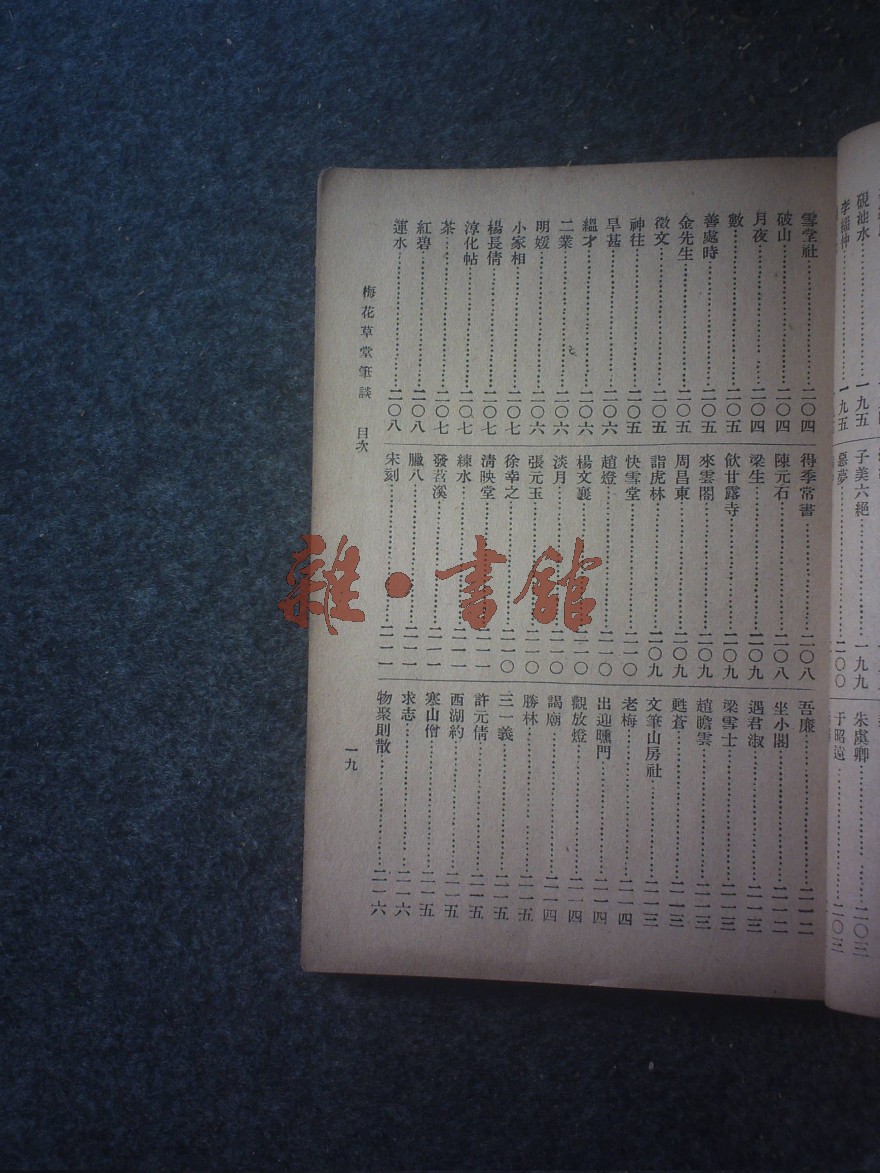 硯池水……一九五
一九五
子美六絕……一九九
惡夢……二〇〇
朱虞卿……二〇三
于昭遠……二〇三
雪堂社……二〇四
破山……二〇四
月夜……二〇四
數……二〇五
善處時……二〇五
金先生……二〇五
徵文……二〇五
神往……二〇五
旱甚……二〇六
縕才……二〇六
二業……二〇六
明媛……二〇六
小家相……二〇七
楊長倩……二〇七
淳化帖……二〇七
茶……二〇七
紅碧……二〇八
蓮水……二〇八
得季常書……二〇八
陳元石……二〇八
梁生……二〇九
飲甘露寺……二〇九
來雲閣……二〇九
周昌東……二〇九
詣虎林……二〇九
快雪堂……二一〇
趙燈……二一〇
楊文襄……二一〇
淡月……二一〇
張元玉……二一〇
徐幸之……二一〇
清映堂……二一一
練水……二一一
發苕溪……二一一
臘八……二一一
宋刻……二一一
吾廉……二一二
坐小閣……二一二
遇君淑……二一三
梁雪士……二一三
趙瞻雲……二一三
甦蒼……二一三
文筆山房社……二一三
老梅……二一四
出迎曛門……二一四
觀放燈……二一四
謁廟……二一四
勝林……二一五
三一義……二一五
許元倩……二一五
西湖約……二一五
寒山僧……二一五
求志……二一六
物聚則散……二一六
梅花草堂筆談　目次
一九
雜·書館